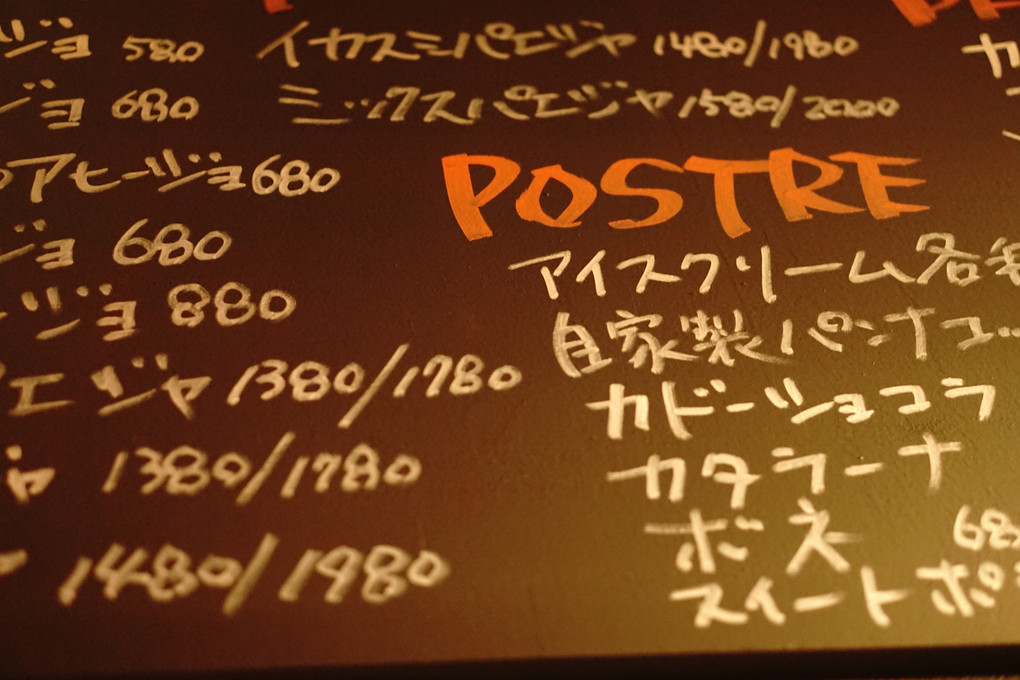 ジョ 580
ジョ 680
アヒージョ 680
ジョ 680
ジョ 880
エジャ 1380/1780
ャ 1380/1780
1480/1980
イカスミパエジャ 1480/1980
ミックスパエジャ 1580/2000
POSTRE
アイスクリーム各
自家製パンナコッ
ガドーショコラ
カタラーナ
ボネ 68
スイートポ
カ